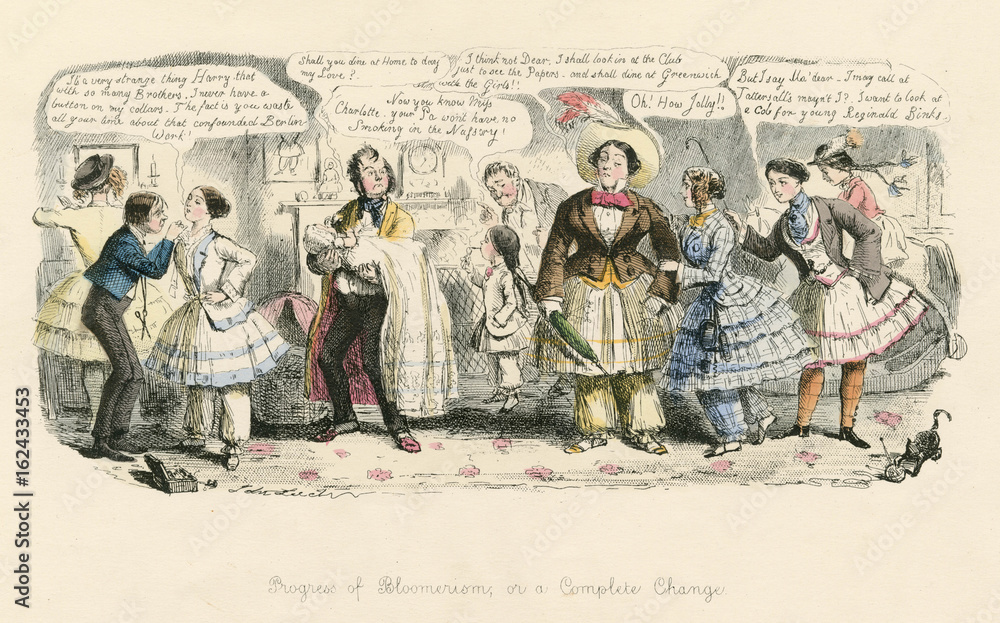 It's a very strange thing Harry that
with so many Brothers, I never have a
button on my collars. The fact is you waste
all your time about that confounded Berlin
Work!
Shall you dine at Home to day
my Love?
Now you know Miss
Charlotte, your Pa won't have no
Smoking in the Nursery!
I think not Dear, I shall look in at the Club
just to see the Papers - and shall dine at Greenwich
with the Girls!!
Oh! How Jolly!!
But I say Ma' dear - I may call at
Tattersall's mayn't I? I want to look at
a Cob for young Reginald Binks.
John Leech
Progress of Bloomerism; or a Complete Change.
Adobe Stock | #162433453
Adobe Stock